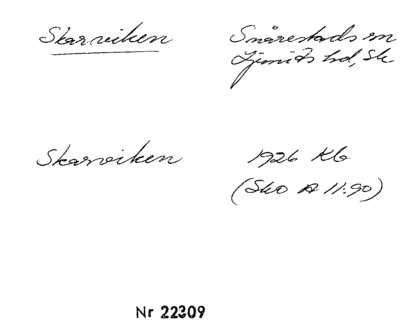 Skarviken
Snårestads sn
Ljunits hd, Sk
Skarviken
1926 Kb
(SkO A 11:90)
Nr 22309